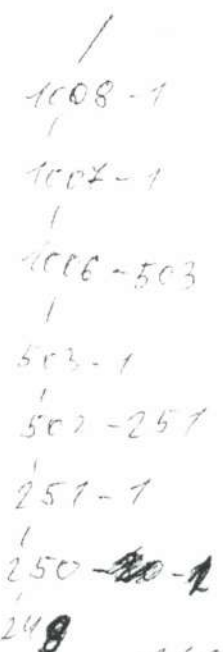 /
1008 - 1
/
1007 - 1
/
1006 - 503
/
503 - 1
/
502 - 251
/
251 - 1
/
250 - 2
/
248